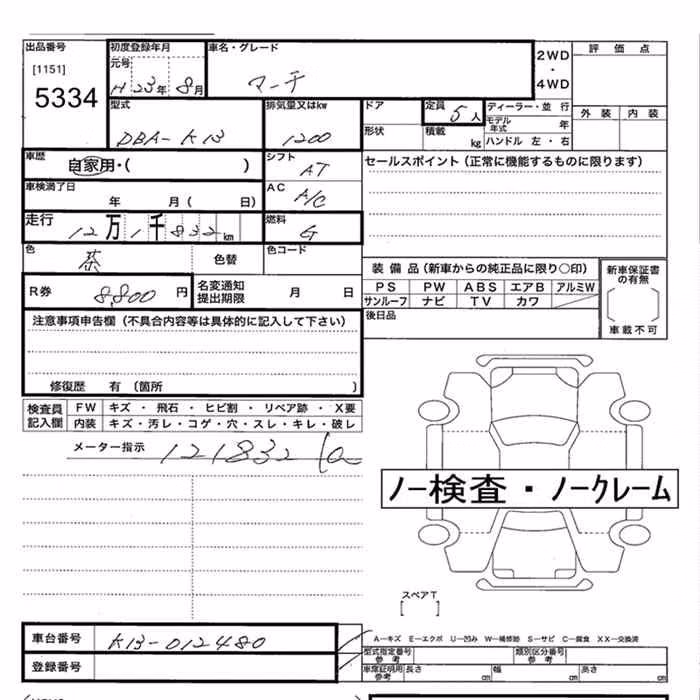 出品番号 初度登録年月 車名・グレード 2WD・4WD 評価点
[1151] 元号
5334 H 23年 8月 マーチ
外装 内装
型式 排気量又はkw ドア 定員 5人 ディーラー・並行
モデル年式 年
DBA-K13 1200 形状 積載 kg ハンドル 左・右
車歴 自家用・( ) シフト AT セールスポイント(正常に機能するものに限ります)
車検満了日 年 月( 日) AC A/C
走行 12万1千832km 燃料 G
色 茶 色替 色コード
装備品(新車からの純正品に限り〇印) 新車保証書の有無
R券 8,800円 名変通知提出期限 月 日
PS PW ABS エアB アルミW
サンルーフ ナビ TV カワ
車載不可
注意事項申告欄(不具合内容等は具体的に記入して下さい) 後日品
修復歴 有 〔箇所 〕
検査員記入欄 FW キズ・飛石・ヒビ割・リペア跡・X要
内装 キズ・汚レ・コゲ・穴・スレ・キレ・破レ
メーター指示 121832
ノー検査・ノークレーム
スペアT
[ ]
車台番号 K13-012480
A-キズ E-エクボ U-凹み W-補修跡 S-サビ C-腐食 XX-交換済
登録番号
型式指定番号 参考 類別区分番号 参考
車庫証明用 参考 長さ cm 幅 cm 高さ cm